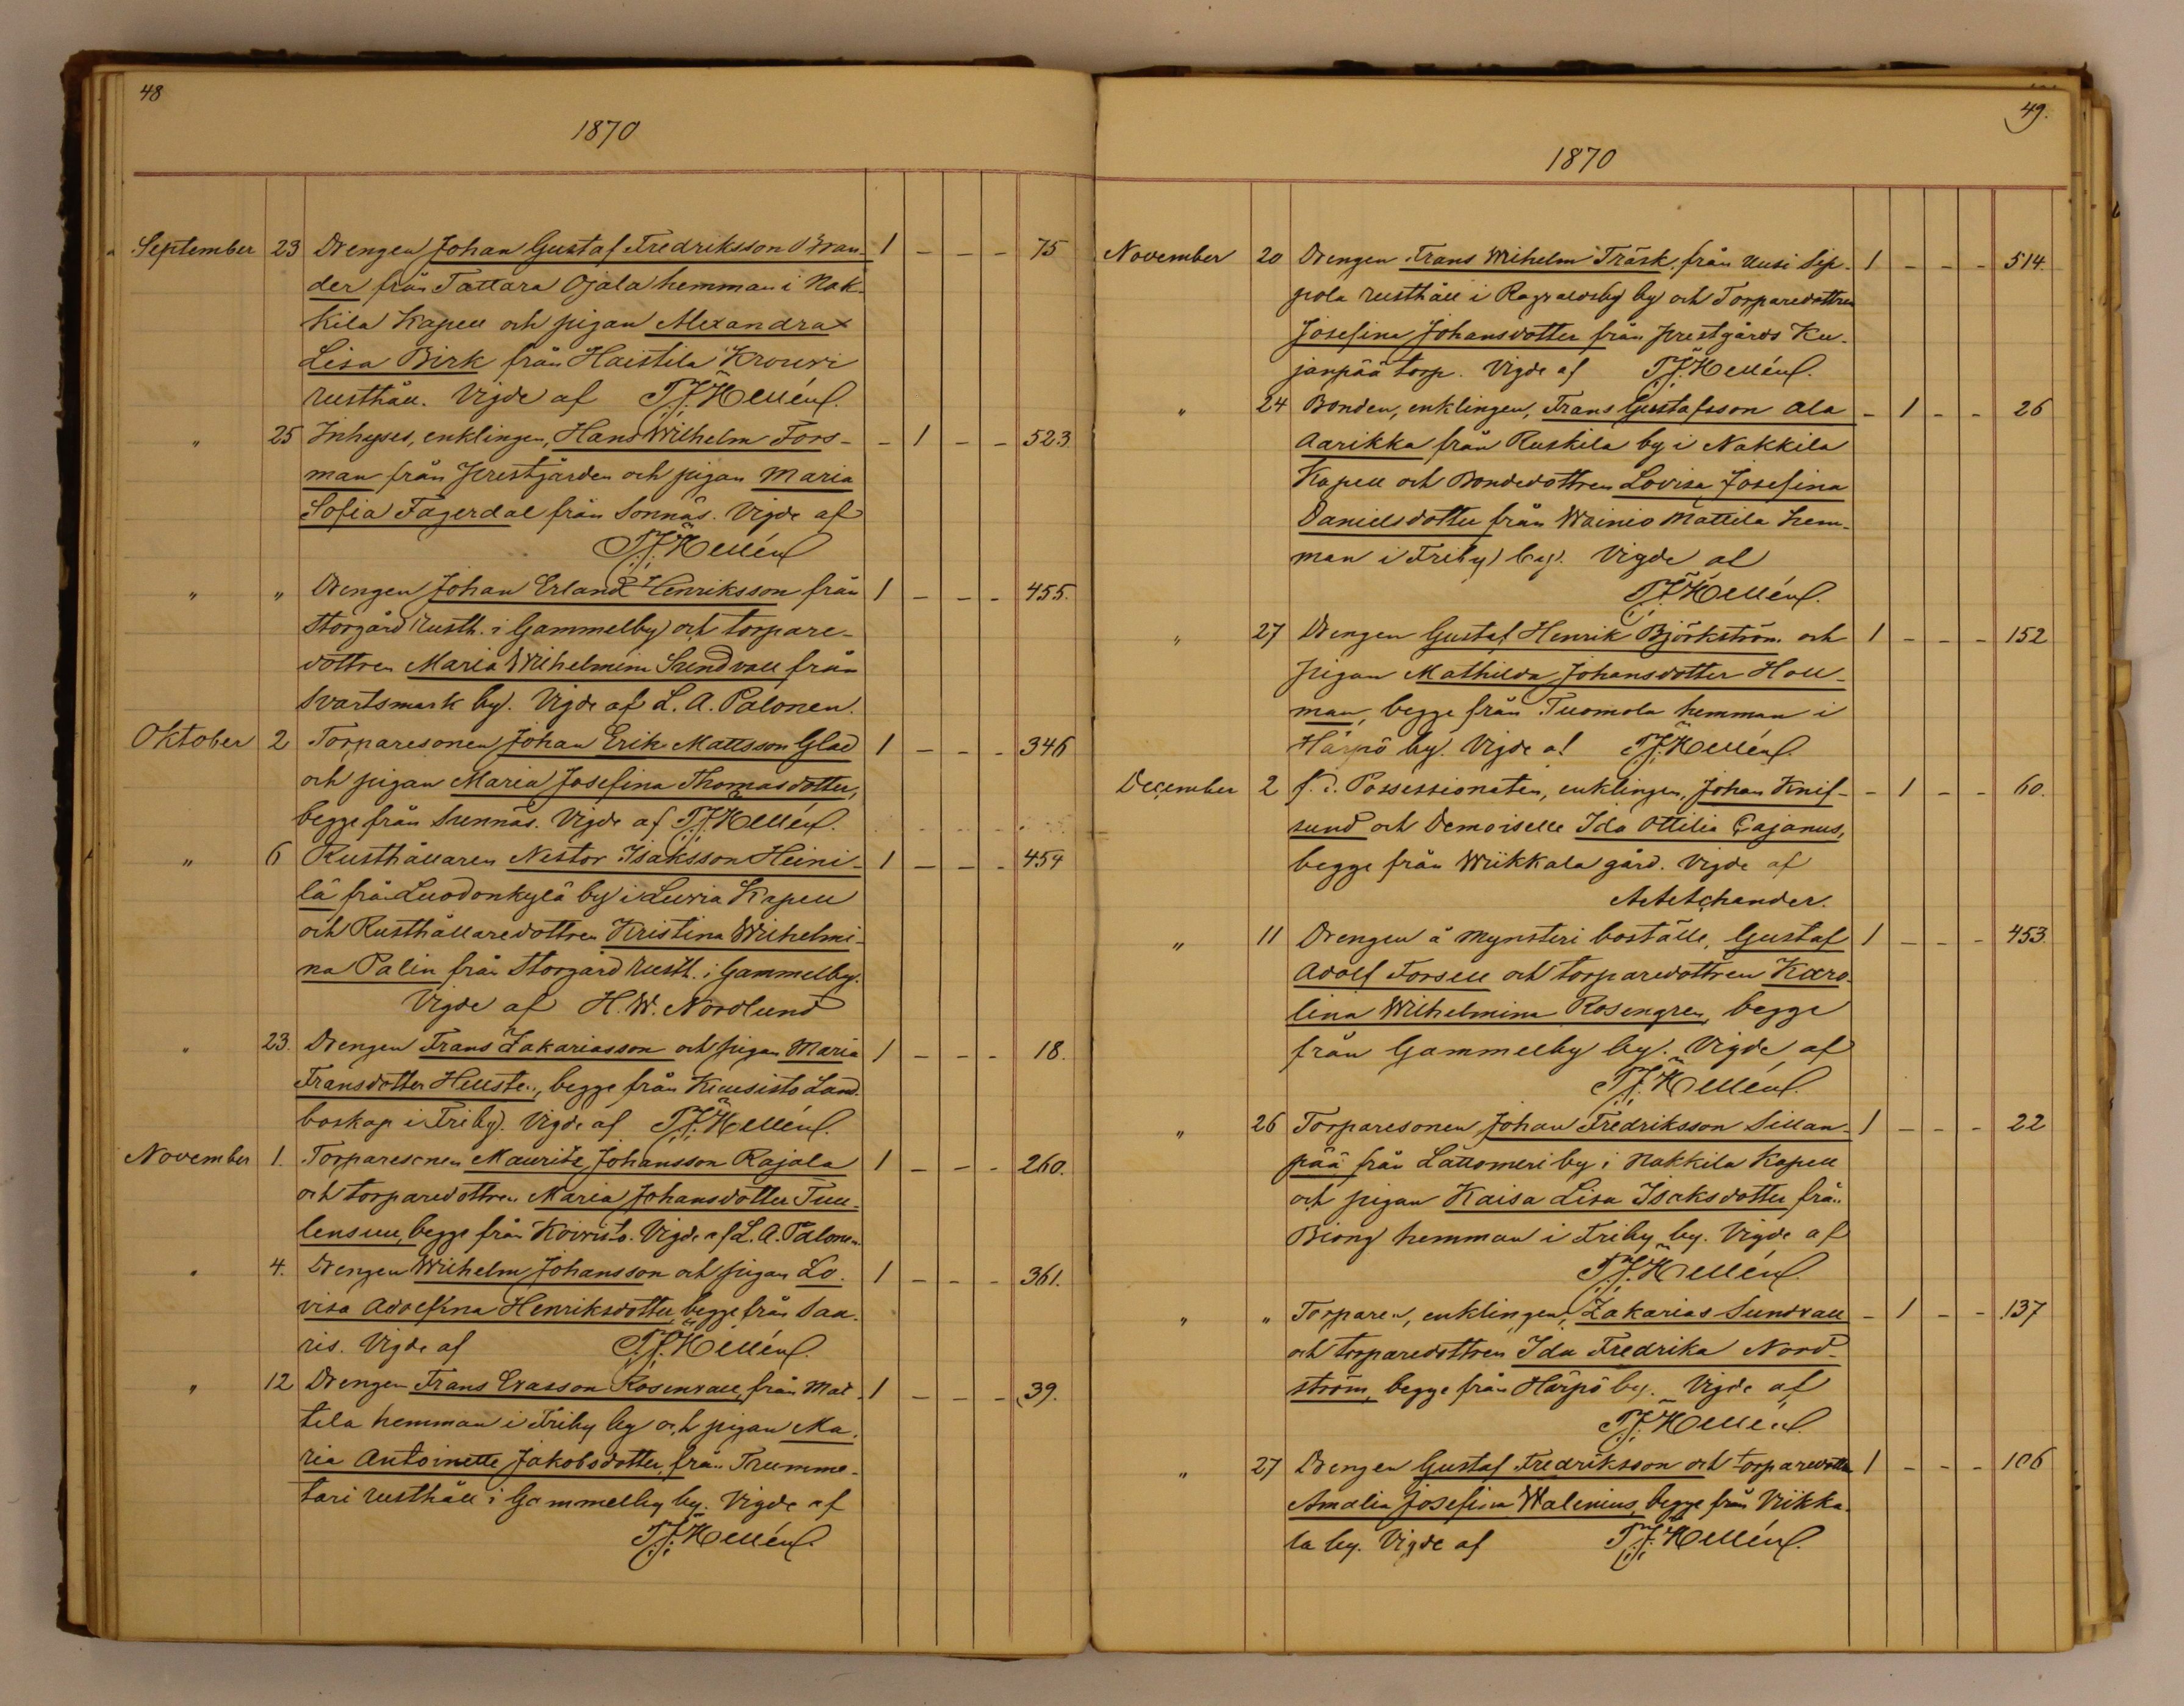 48
1870
September 23 Drengen Johan Gustaf Fredriksson Bran- 1 - - - 75
der från Tattara Ojala hemman i Nak-
kila Kapell och pigan Alexandra
Lisa Birk från Haistila Krouvi
rusthåll. Vigde af T. J. Hellén.
" 25 Inhyses, enklingen, Hans Wilhelm Fors- - 1 - - 523.
man från Prestgården och pigan Maria
Sofia Fagerdal från Sonnäs. Vigde af
T. J. Hellén
" " Drengen Johan Erland Henriksson från 1 - - - 455.
Storgård rusth. i Gammelby och torpare-
dottren Maria Wilhelmina Sundvall från
Svartsmark by. Vigde af L. A. Palonen.
Oktober 2 Torparesonen Johan Erik Mattsson Glad 1 - - - 346
och pigan Maria Josefina Thomasdotter,
begge från Sunnäs. Vigde af T. J. Hellén.
" 6 Rusthållaren Nestor Isaksson Heini- 1 - - - 454
lä från Luodonkylä by i Luvia Kapell
och Rusthållaredottren Kristina Wilhelmi-
na Palin från Storgård rusth. i Gammelby.
Vigde af H. W. Nordlund
" 23. Drengen Frans Zakariasson och pigan Maria 1 - - - 18.
Fransdotter Hellsten, begge från Kuusisto Land-
boskap i Friby. Vigde af T. J. Hellén.
November 1. Torparesonen Maurits Johansson Rajala 1 - - - 260.
och torparedottren Maria Johansdotter Tuu-
lensuu, begge från Koivisto. Vigde af L. A. Palonen.
" 4. Drengen Wilhelm Johansson och pigan Lo- 1 - - - 361.
visa Adolfina Henriksdotter, begge från Saa-
ris. Vigde af T. J. Hellén.
" 12 Drengen Frans Evasson Rosenvall, från Mat- 1 - - - 39.
tila hemman i Friby by och pigan Ma-
ria Antoinette Jakobsdotter, från Trumme-
tari rusthåll i Gammelby by. Vigde af
T. J. Hellén.
49.
1870
November 20 Drengen Frans Wilhelm Träsk, från Uusi Sip- 1 - - - 514.
pola rusthåll i Ragvaldsby by och Torparedottren
Josefina Johansdotter från Prestgårds Ku-
janpää torp. Vigde af T. J. Hellén.
" 24 Bonden, enklingen, Frans Gustafsson Ala - 1 - - 26
Aarikka från Ruskila by i Nakkila
Kapell och Bondedottren Lovisa Josefina
Danielsdotter från Wainio Mattila hem-
man i Friby by. Vigde af
T. J. Hellén.
" 27 Drengen Gustaf Henrik Björkström och 1 - - - 152
Pigan Mathilda Johansdotter Holl-
man, begge från Tuomola hemman i
Härpö by. Vigde af T. J. Hellén.
December 2 f. d. Possessionaten, enklingen, Johan Knif- - 1 - - 60.
sund och Demoiselle Ida Ottilia Cajanus,
begge från Wiikkala gård. Vigde af

" 11 Drengen å Mynsteri boställe, Gustaf 1 - - - 453.
Adolf Forsell och torparedottren Karo-
lina Wilhelmina Rosengren, begge
från Gammelby by. Vigde af
T. J. Hellén.
" 26 Torparesonen Johan Fredriksson Sillan- 1 - - - 22
pää från Lattomeri by i Nakkila Kapell
och pigan Kaisa Lisa Isaksdotter från
Biong hemman i Friby by. Vigde af
T. J. Hellén.
" " Torparen, enklingen, Zakarias Sundvall - 1 - - 137
och torparedottren Ida Fredrika Nord-
ström, begge från Härpö by. Vigde af
T. J. Hellén.
" 27 Drengen Gustaf Fredriksson och torparedottren 1 - - - 106
Amalia Josefina Walenius, begge från Viikka-
la by. Vigde af T. J. Hellén.